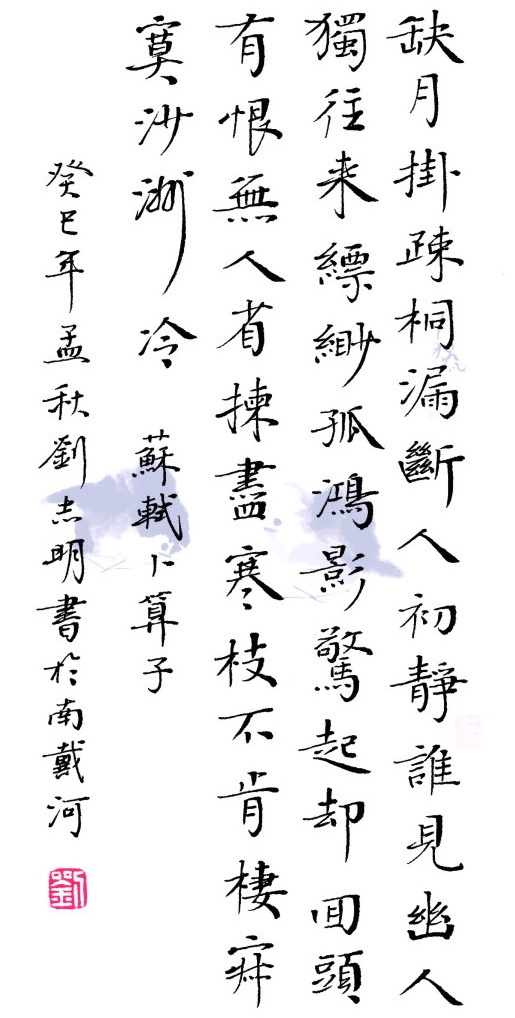 缺月掛疎桐漏斷人初靜誰見幽人
獨往来縹緲孤鴻影驚起却回頭
有恨無人省揀盡寒枝不肯棲寂
寞沙洲冷
蘇軾卜算子
癸巳年孟秋劉志明書於南戴河
劉